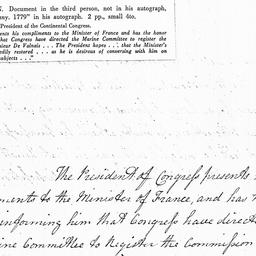 . Document in the third person, not in his autograph,
any. 1779" in his autograph. 2 pp., small 4to.
President of the Continental Congress.
ents his compliments to the Minister of France and has the honor
that Congress have directed the Marine Committee to register the
sieur De Valnais . . . The President hopes . . . that the Minister's
edily restored . . . as he is desirous of conversing with him on
subjects . . ."
The President of Congress presents
ments to the Minister of France, and has
informing him that Congress have direct
ine Committee to Register the Commission